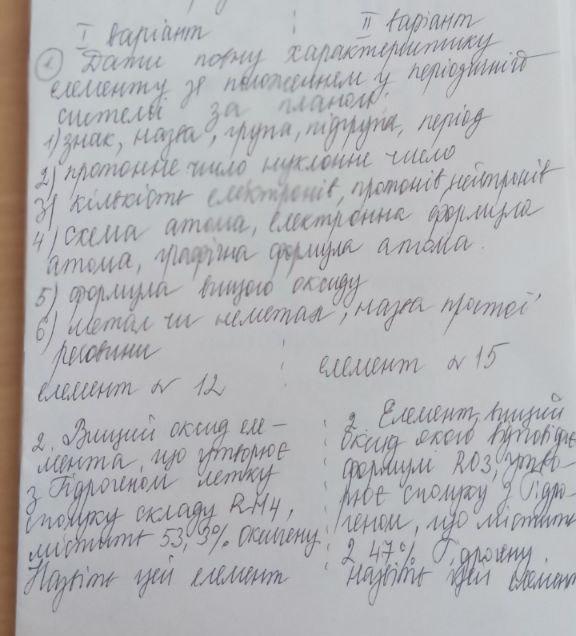 I варіант
II варіант
1. Дати повну характеристику
елементу за положенням у періодичній
системі за планом:
1) знак, назва, група, підгрупа, період
2) протонне число нуклонне число
3) кількість електронів, протонів, нейтронів
4) схема атома, електронна формула
атома, графічна формула атома.
5) формула вищого оксиду
6) метал чи неметал, назва простої
речовини
елемент № 12
елемент № 15
2. Вищий оксид еле-
мента, що утворює
з Гідрогеном летку
сполуку складу RH4,
містить 53,3% оксигену.
Назвіть цей елемент
2. Елемент, вищий
оксид якого відповідає
формулі RO3, утво-
рює сполуку з Гідро-
геном, що містить
2,47% Гідрогену.
Назвіть цей елемент